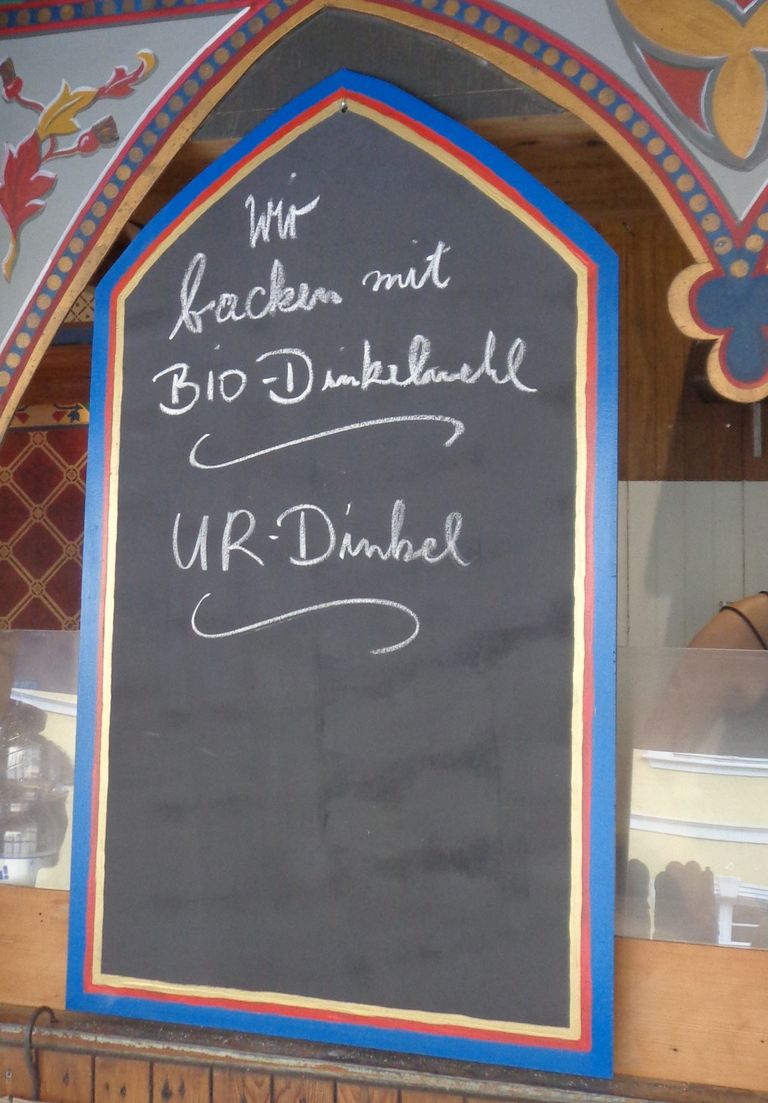 Wir
backen mit
BIO-Dinkelmehl
UR-Dinkel